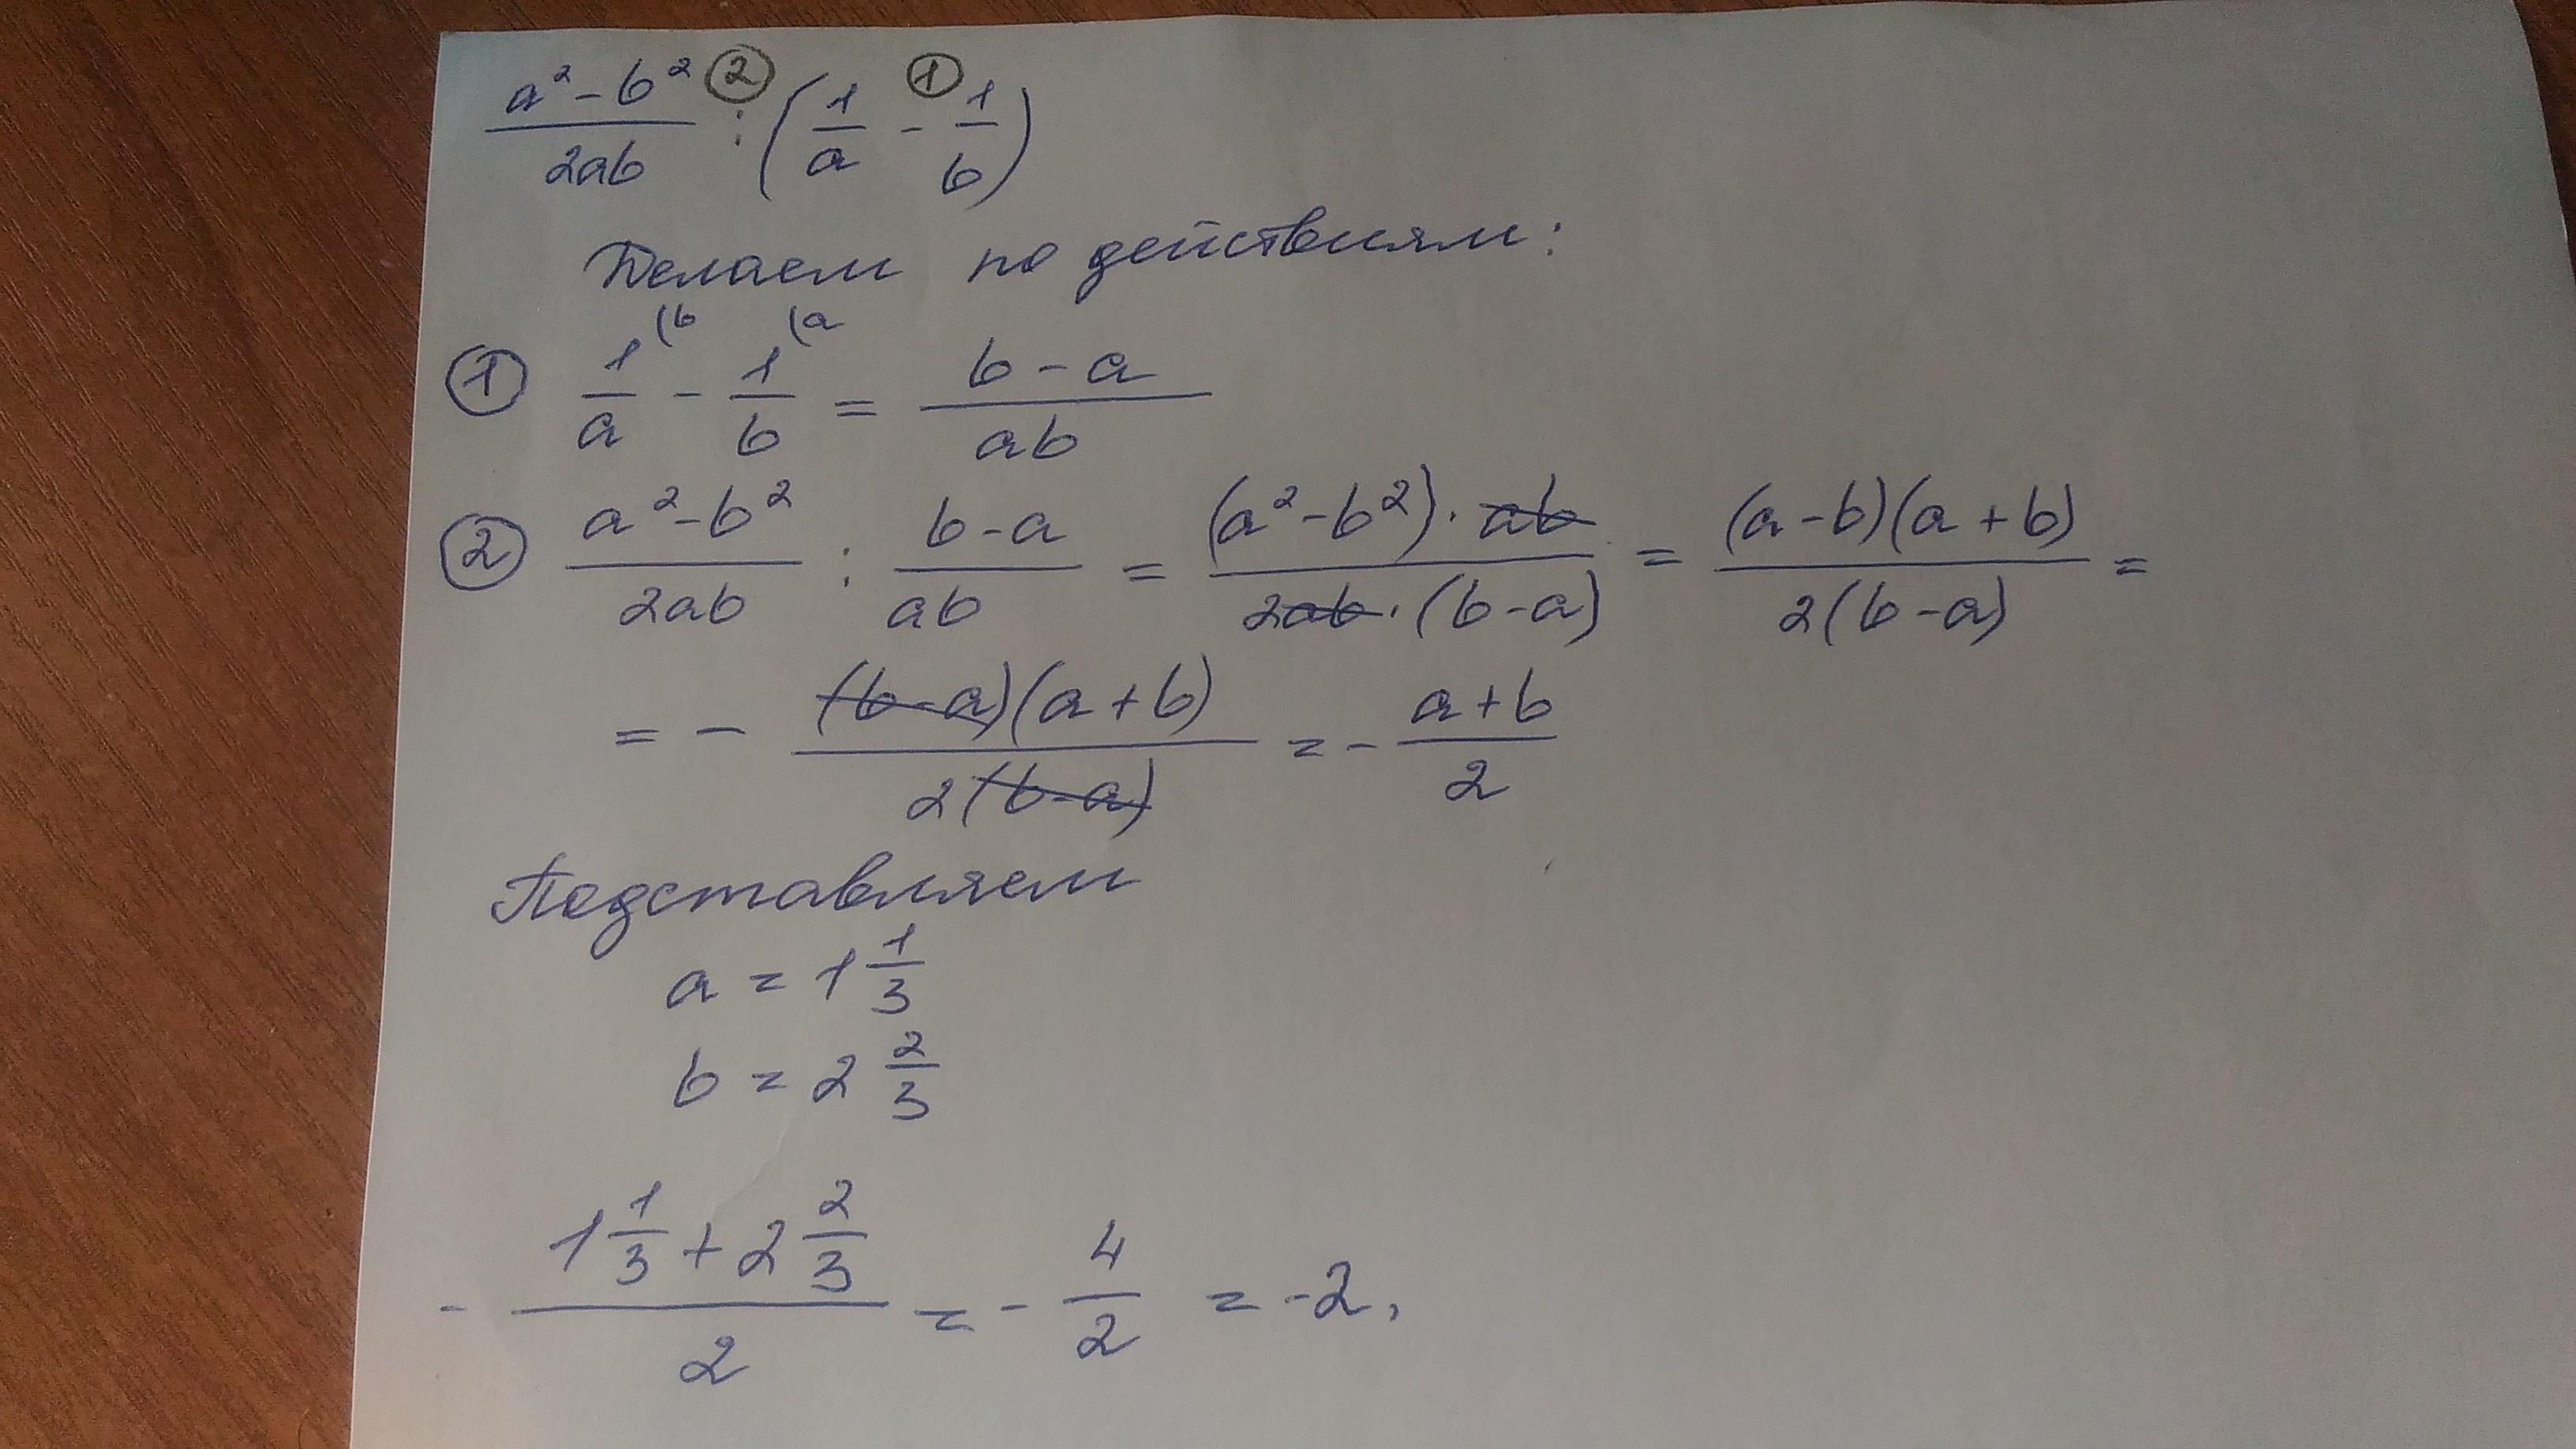 (a² - b²)/(2ab) ② : (1/a ① - 1/b)
Делаем по действиям:
① 1/a (b - 1/b (a = (b - a)/(ab)
② (a² - b²)/(2ab) : (b - a)/(ab) = ((a² - b²) · ab)/(2ab · (b - a)) = ((a - b)(a + b))/(2(b - a)) =
= - ((b - a)(a + b))/(2(b - a)) = - (a + b)/2
Подставляем
a = 1 1/3
b = 2 2/3
- (1 1/3 + 2 2/3)/2 = - 4/2 = -2,